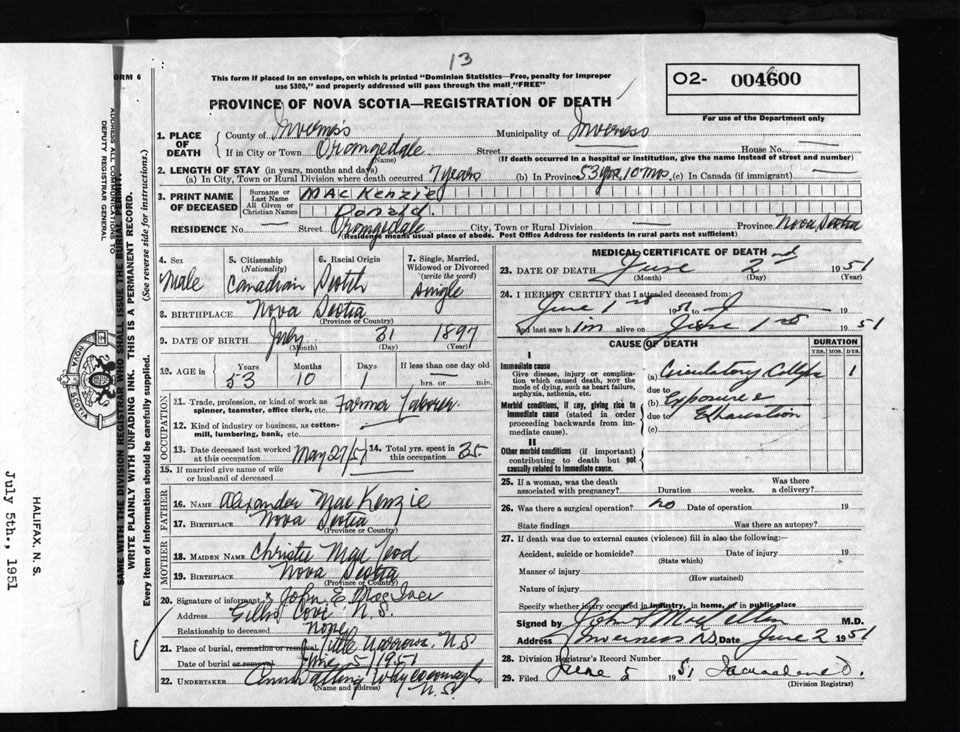 13
This form if placed in an envelope, on which is printed "Dominion Statistics—Free, penalty for improper
use $300," and properly addressed will pass through the mail "FREE"
FORM 6
O2- 004600
PROVINCE OF NOVA SCOTIA—REGISTRATION OF DEATH
For use of the Department only
1. PLACE OF DEATH { County of Inverness Municipality of Inverness
If in City or Town Orangedale Street House No. —
(Name) (If death occurred in a hospital or institution, give the name instead of street and number)
2. LENGTH OF STAY (in years, months and days)
(a) In City, Town or Rural Division where death occurred 7 years (b) In Province 53 yrs, 10 mos. (c) In Canada (if immigrant) —
3. PRINT NAME OF DECEASED { Surname or Last Name MACKENZIE
All Given or Christian Names Donald.
RESIDENCE No. — Street Orangedale City, Town or Rural Division — Province Nova Scotia
(Residence means usual place of abode. Post Office Address for residents in rural parts not sufficient)
4. Sex Male
5. Citizenship (Nationality) Canadian
6. Racial Origin Scotch
7. Single, Married, Widowed or Divorced (write the word) Single
8. BIRTHPLACE Nova Scotia
(Province or Country)
9. DATE OF BIRTH July 31 1897
(Month) (Day) (Year)
10. AGE in { Years 53 Months 10 Days 1 If less than one day old — hrs. or min.
OCCUPATION
11. Trade, profession, or kind of work as spinner, teamster, office clerk, etc. Farmer Laborer
12. Kind of industry or business, as cotton-mill, lumbering, bank, etc.
13. Date deceased last worked at this occupation May 27/51 14. Total yrs. spent in this occupation 35.
15. If married give name of wife or husband of deceased
FATHER
16. NAME Alexander MacKenzie
17. BIRTHPLACE Nova Scotia
(Province or Country)
MOTHER
18. MAIDEN NAME Christie MacLeod
19. BIRTHPLACE Nova Scotia
(Province or Country)
20. Signature of informant John E
Address Cove N.S.
Relationship to deceased None
21. Place of burial, cremation or removal Little Narrows N.S
Date of burial or removal June 5/1951
22. UNDERTAKER Whycocomagh N.S.
(Name and address)
MEDICAL CERTIFICATE OF DEATH
23. DATE OF DEATH June 2nd 1951
(Month) (Day) (Year)
24. I HEREBY CERTIFY that I attended deceased from
June 1st 1951 to 19
and last saw him alive on June 1st 1951
CAUSE OF DEATH
DURATION
YRS. MOS. DYS.
I
Immediate cause
Give disease, injury or complication which caused death, NOT the mode of dying, such as heart failure, asphyxia, asthenia, etc.
(a) Circulatory Collapse 1
due to
Morbid conditions, if any, giving rise to immediate cause (stated in order proceeding backwards from immediate cause).
(b) Exposure &
due to Exhaustion
(c)
II
Other morbid conditions (if important) contributing to death but not causally related to immediate cause.
25. If a woman, was the death associated with pregnancy? Duration weeks. Was there a delivery?
26. Was there a surgical operation? no Date of operation. 19
State findings Was there an autopsy?
27. If death was due to external causes (violence) fill in also the following:—
Accident, suicide or homicide? Date of injury 19
(State which)
Manner of injury
(How sustained)
Nature of injury
Specify whether injury occurred in industry, in home, or in public place
Signed by M.D.
Address Inverness N.S. Date June 2 1951
28. Division Registrar's Record Number
29. Filed June 5 1951
(Division Registrar)
ADDRESS ALL COMMUNICATIONS TO
DEPUTY REGISTRAR GENERAL
SAME WITH THE DIVISION REGISTRAR WHO SHALL ISSUE THE BURIAL PERMIT.
WRITE PLAINLY WITH UNFADING INK. THIS IS A PERMANENT RECORD.
Every item of information should be carefully supplied.
(See reverse side for instructions.)
NOVA SCOTIA
HALIFAX, N. S.
July 5th., 1951